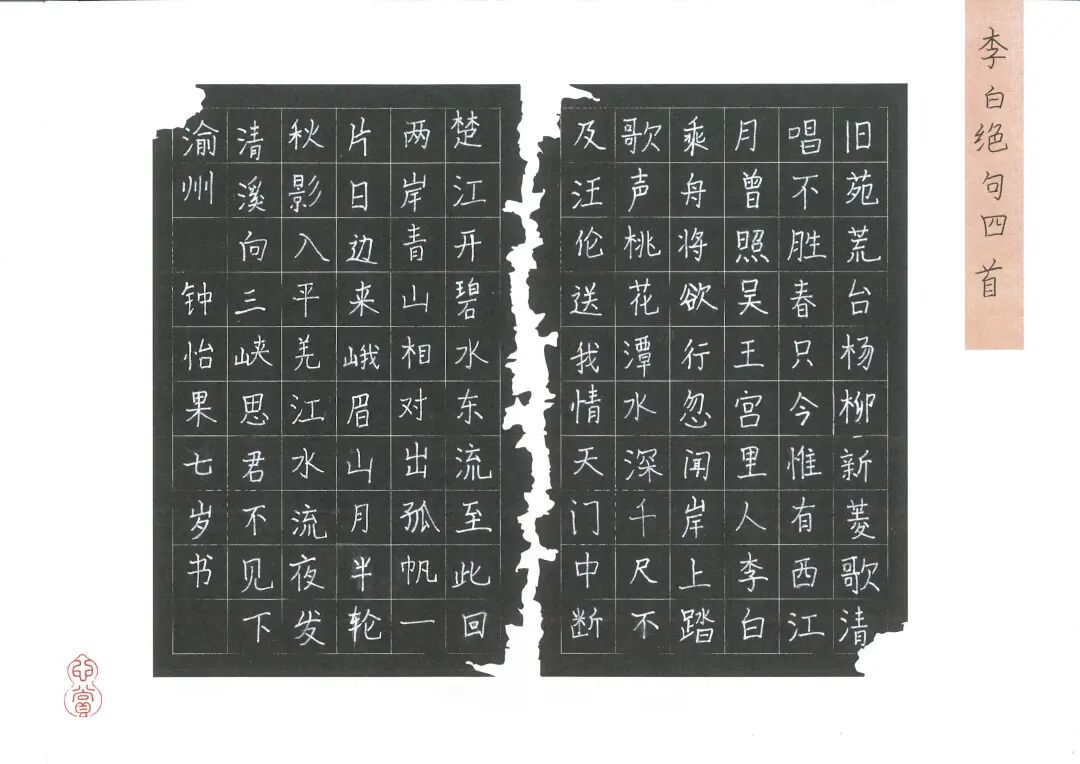 李白绝句四首
旧苑荒台杨柳新菱歌清
唱不胜春只今惟有西江
月曾照吴王宫里人李白
乘舟将欲行忽闻岸上踏
歌声桃花潭水深千尺不
及汪伦送我情天门中断
楚江开碧水东流至此回
两岸青山相对出孤帆一
片日边来峨眉山月半轮
秋影入平羌江水流夜发
清溪向三峡思君不见下
渝州 钟怡果七岁书
賞